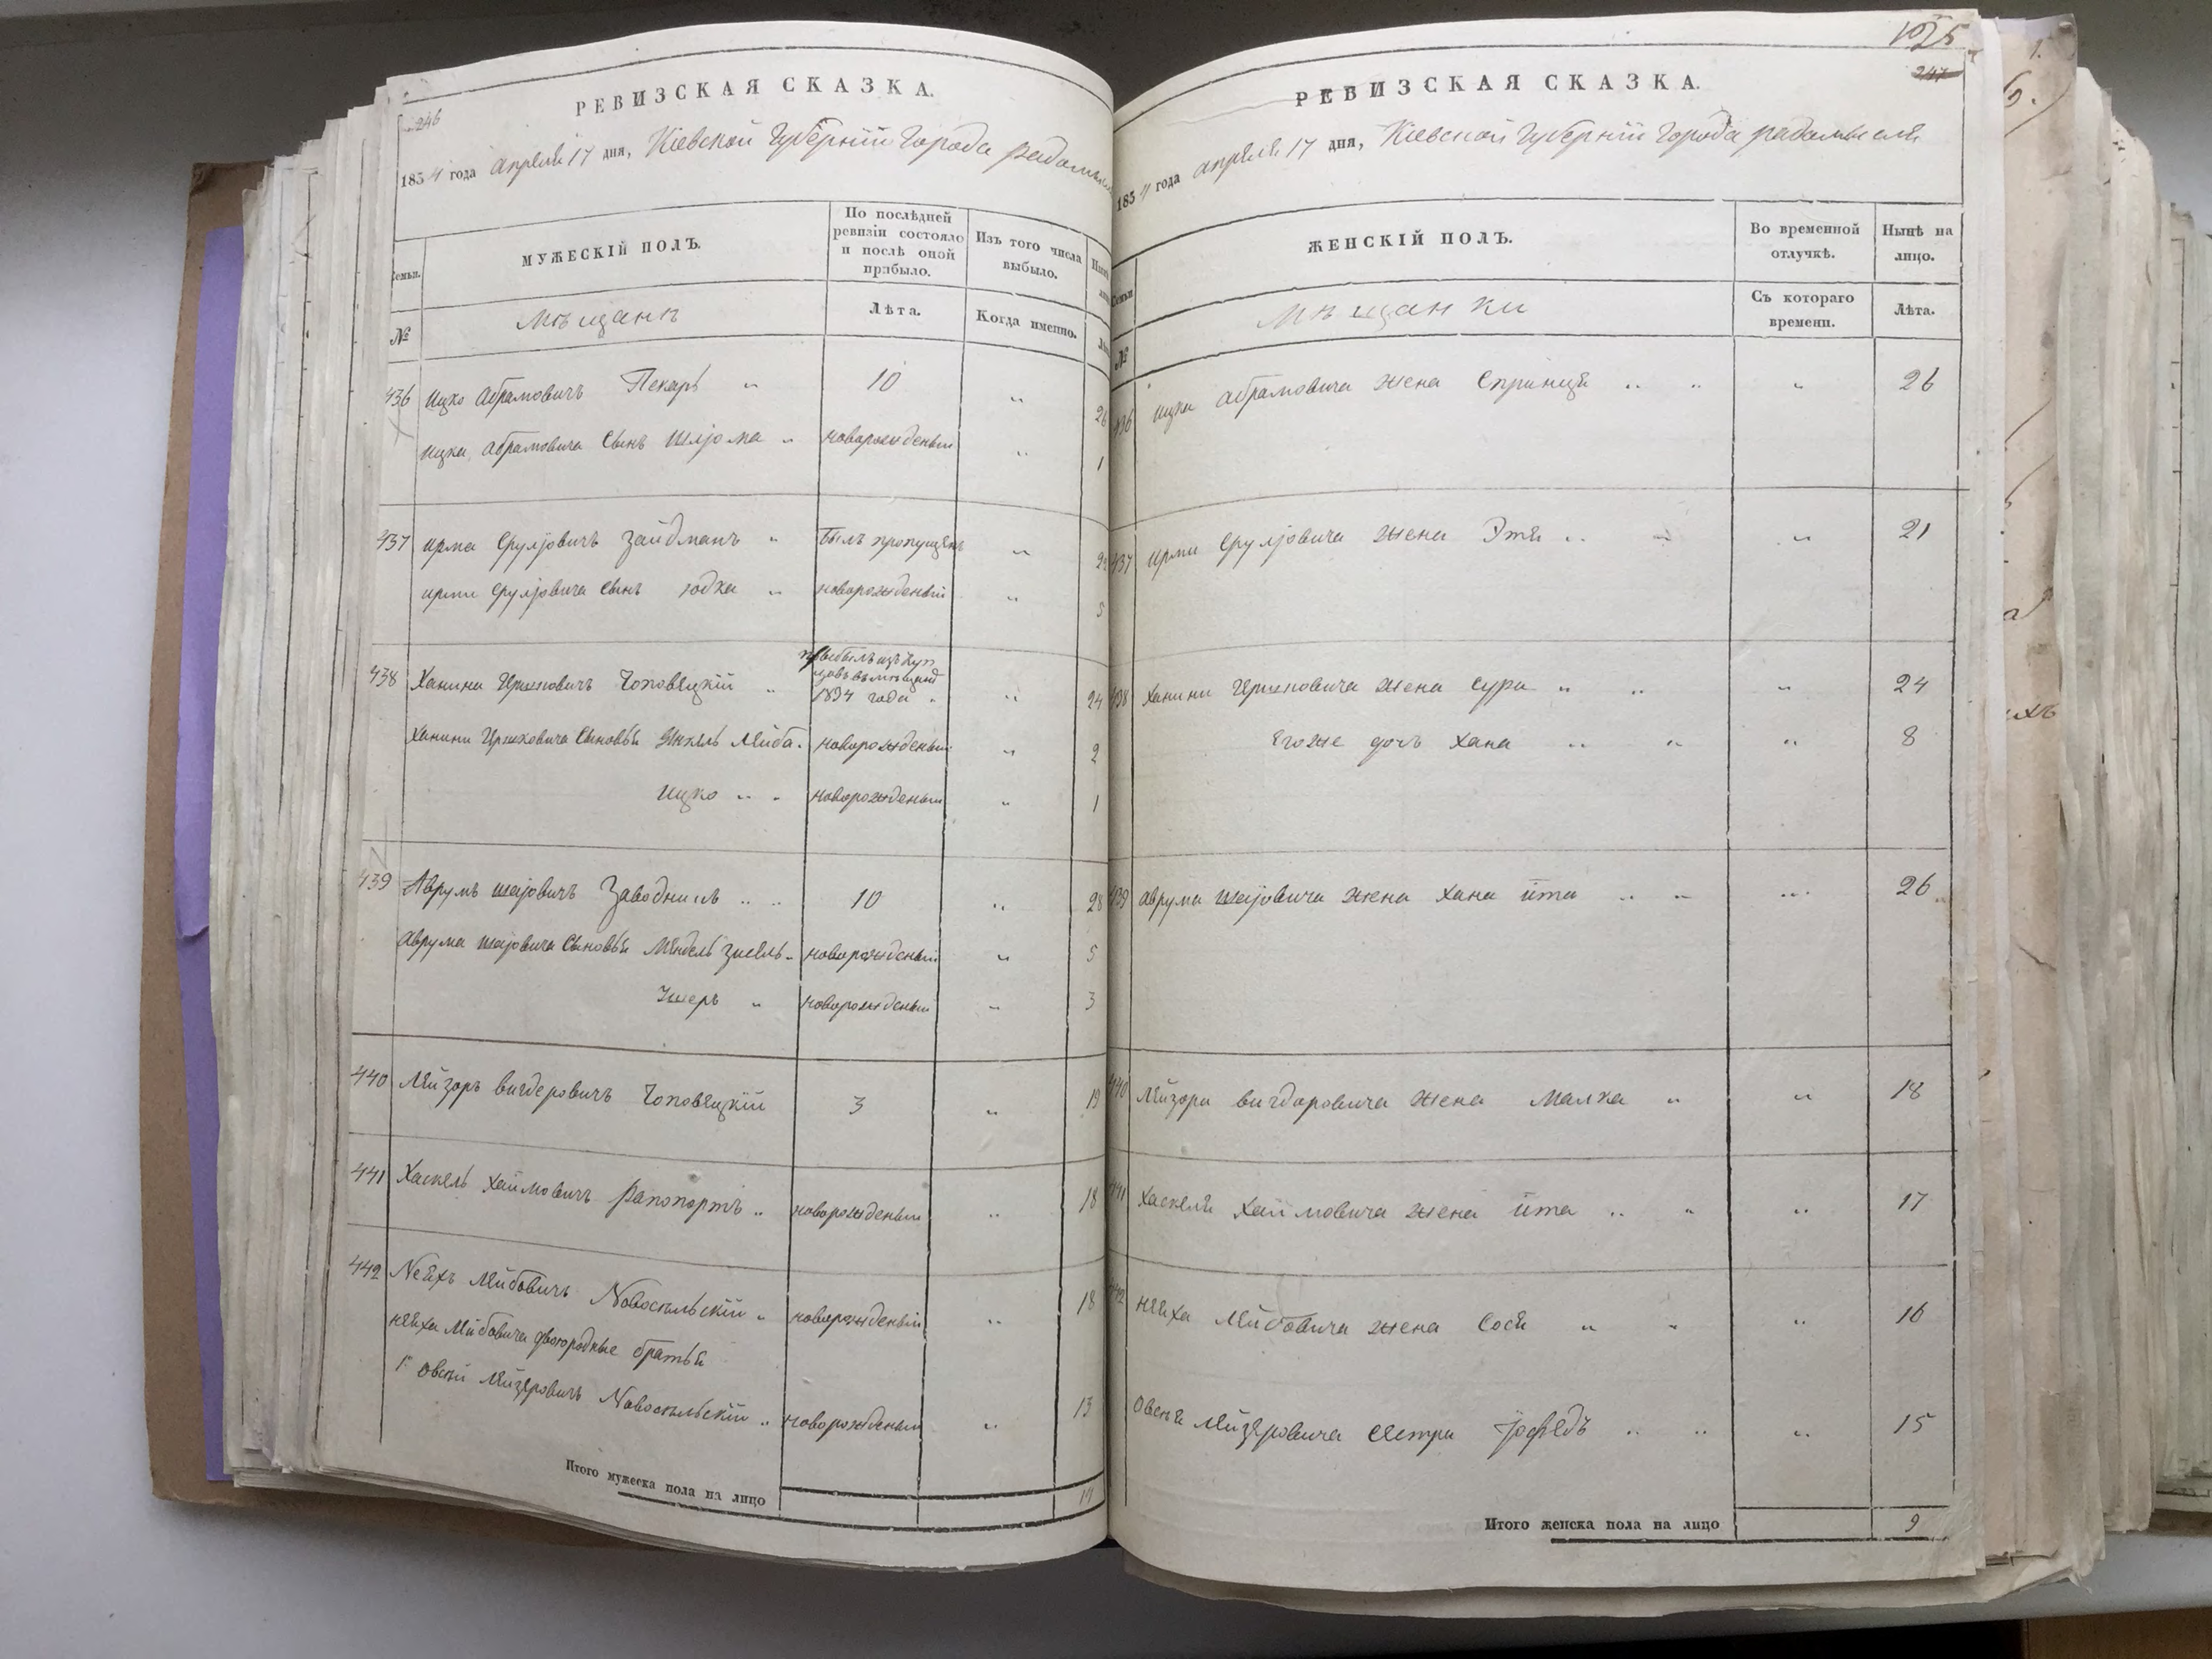 246
РЕВИЗСКАЯ СКАЗКА.
1854 года апреля 17 дня, Кіевской Губерніи Города Радомысля
Семьи.
МУЖЕСКІЙ ПОЛЪ.
По послѣдней ревизіи состояло и послѣ оной прибыло.
Изъ того числа выбыло.
№
Мѣщанъ
Лѣта.
Когда именно.
436 Ицко Абрамовичъ Пекарь " 10 " 26
Ицка Абрамовича Сынъ Шлјома " новорожденый " 1
437 Ирма Сруліовичъ Зайдманъ " былъ пропущенъ "
Ирми Сруліовича Сынъ Юдка " новорожденый " 5
438 Ханина Ершковичъ Чоповецкій " прыбылъ изъ Куп
цовъ въ
1854 года " " 24
Ханини Ершковича Сыновья Янкель Лейба " новорожденый " 2
Ицко " " новорожденый " 1
439 Аврумъ Шајовичъ " " 10 " 28
Аврума Шајовича Сыновья Мендель Зисель " новорожденый " 5
Ушеръ " новорожденый " 3
440 Лейзоръ Вигдеровичъ Чоповецкій 3 " 19
441 Хаскель Хаймовичъ Рапопортъ " новорожденый " 18
442 Неехъ Лейбовичъ Новосельскій " новорожденый " 18
Нееха Лейбовича двоюродные братья
1й Овсей Лейзеровичъ Новосельскій " новорожденый " 13
Итого мужеска пола на лицо 14
1025
247
РЕВИЗСКАЯ СКАЗКА.
1854 года апреля 17 дня, Кіевской Губерніи Города Радомысля
Семьи
ЖЕНСКІЙ ПОЛЪ.
Во временной отлучкѣ.
Нынѣ на лицо.
№
Мѣщанки
Съ котораго времени.
Лѣта.
436 Ицка Абрамовича жена Спринця " " " 26
437 Ирми Сруліовича жена Этя " " " 21
438 Ханини Ершковича жена Сура " " " 24
Егоже дочь Хана " " " 8
439 Аврума Шајовича жена Хана Ита " " " 26
440 Лейзора Вигдоровича жена Малка " " 18
441 Хаскеля Хаймовича жена Ита " " " 17
442 Нееха Лейбовича жена Сося " " " 16
Овсея Лейзеровича Сестра " " " 15
Итого женска пола на лицо 9